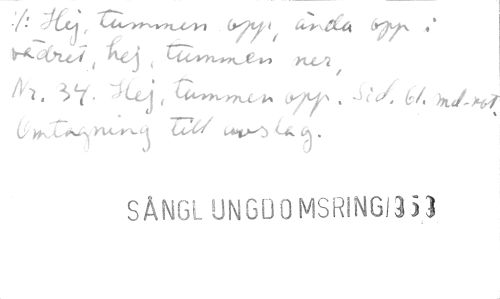 :/: Hej, tummen opp, ända opp i
vädret, hej, tummen ner,
Nr. 34. Hej, tummen opp. Sid. 61. md-not.
Omtagning till avslag.
SÅNGL UNGDOMSRING/353